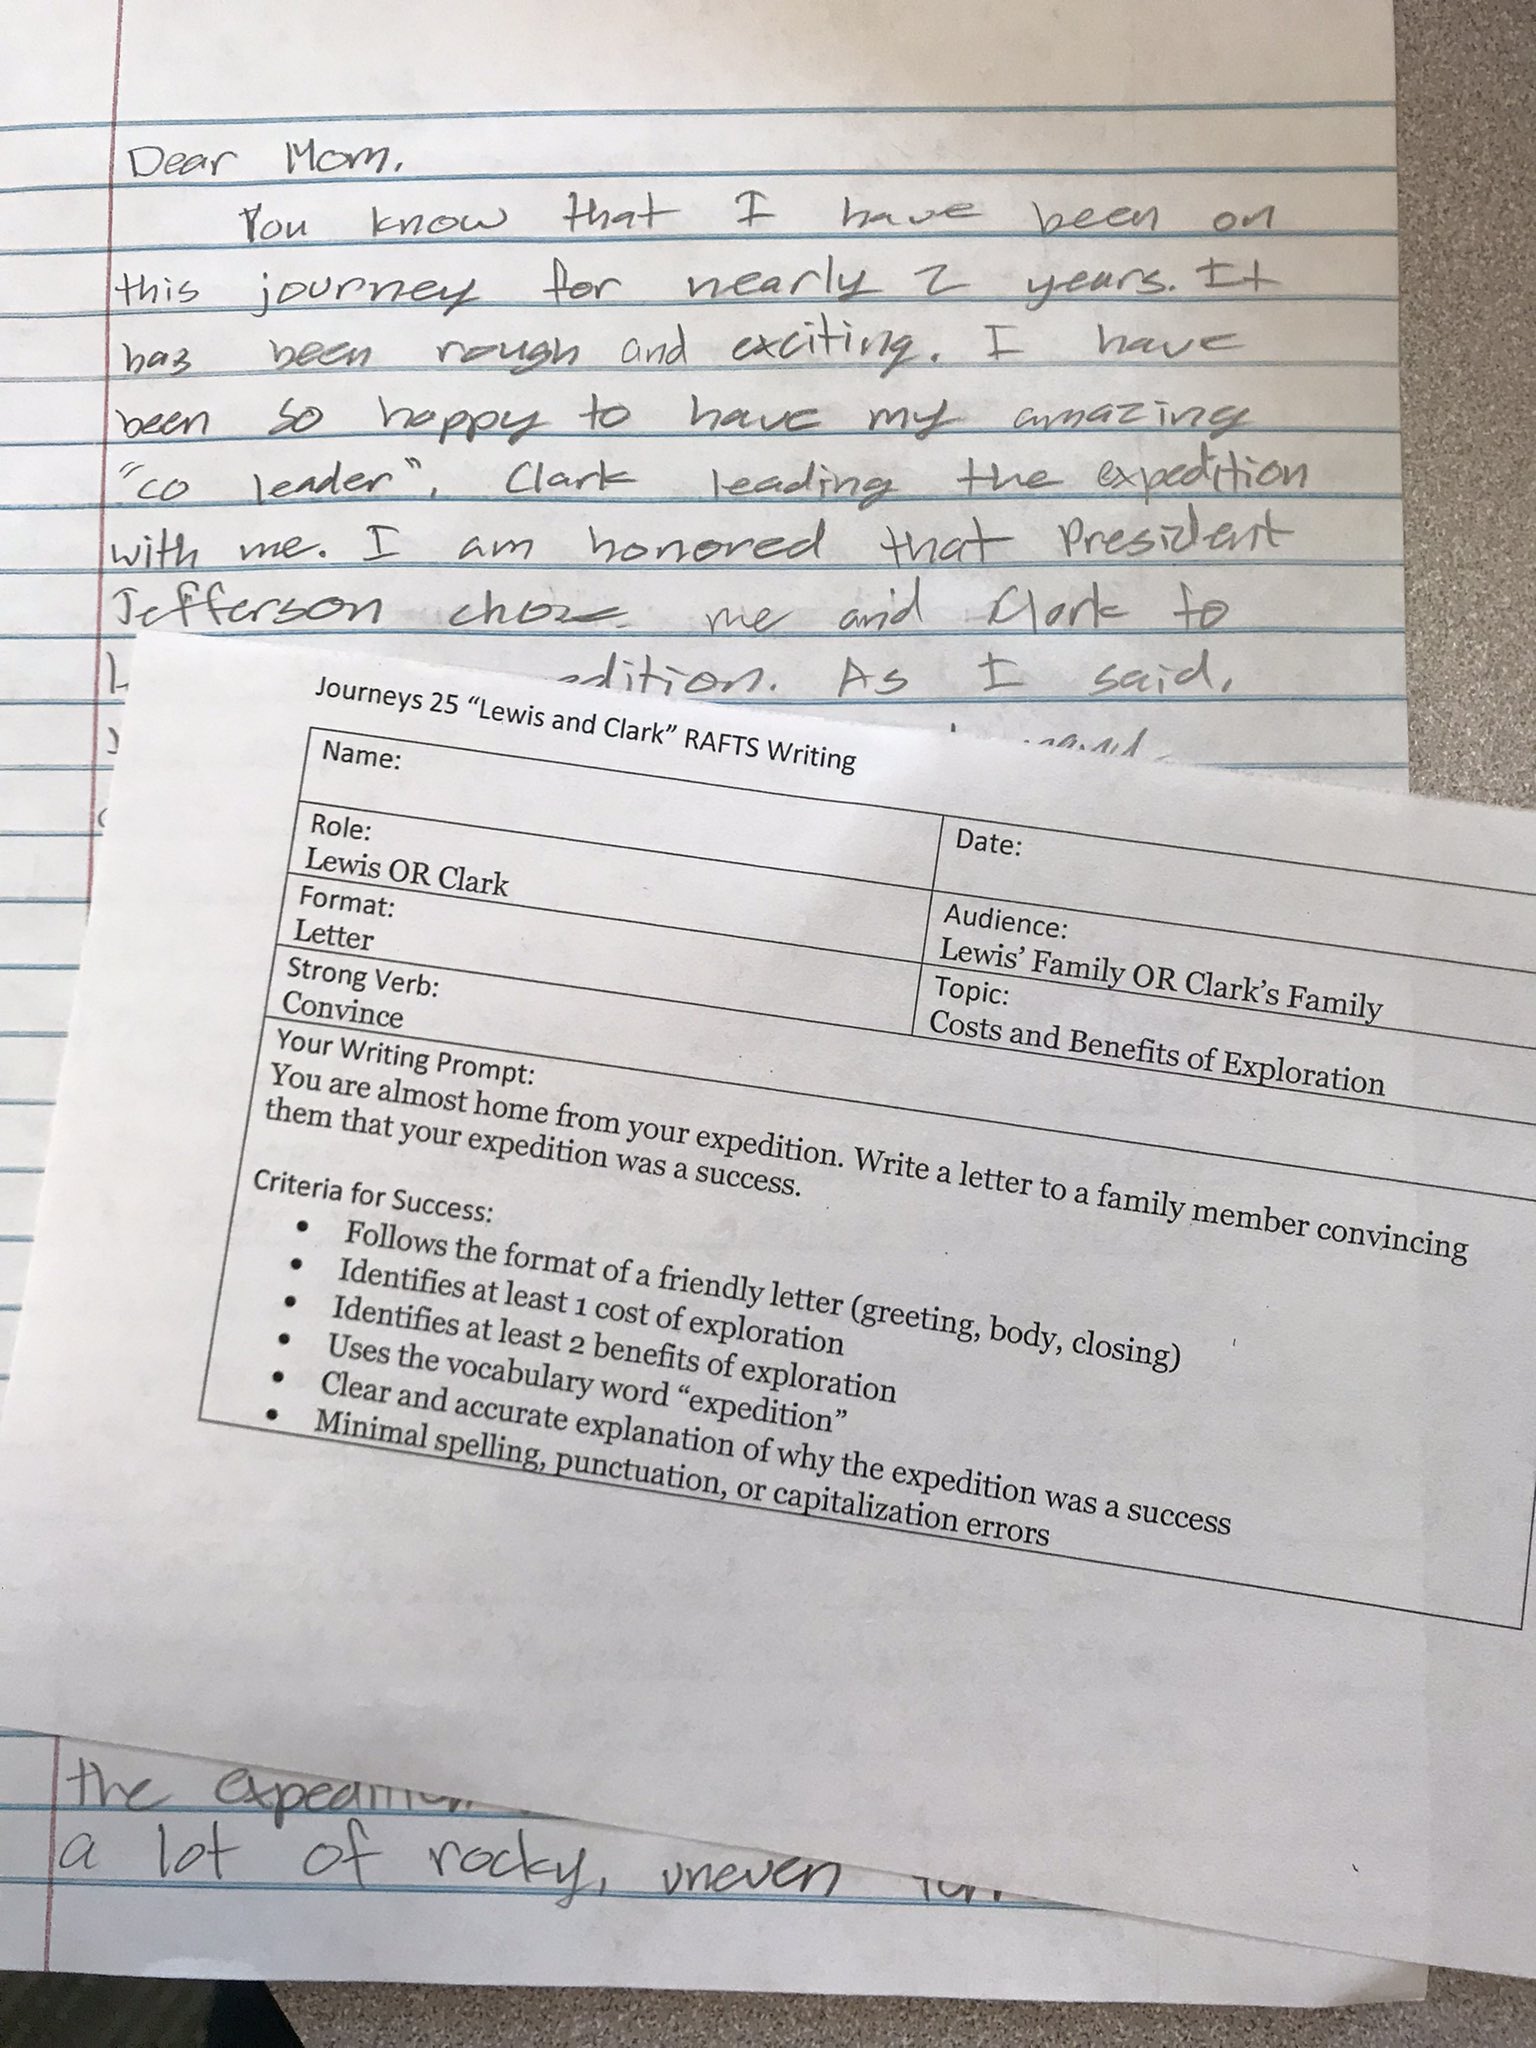 Dear Mom,
You know that I have been on
this journey for nearly 2 years. It
has been rough and exciting. I have
been so happy to have my amazing
"co leader", Clark leading the expedition
with me. I am honored that President
Jefferson chose me and Clark to
edition. As I said,
Journeys 25 "Lewis and Clark" RAFTS Writing
Name:
Date:
Role:
Lewis OR Clark
Audience:
Lewis' Family OR Clark's Family
Format:
Letter
Topic:
Costs and Benefits of Exploration
Strong Verb:
Convince
Your Writing Prompt:
You are almost home from your expedition. Write a letter to a family member convincing
them that your expedition was a success.
Criteria for Success:
• Follows the format of a friendly letter (greeting, body, closing)
• Identifies at least 1 cost of exploration
• Identifies at least 2 benefits of exploration
• Uses the vocabulary word "expedition"
• Clear and accurate explanation of why the expedition was a success
• Minimal spelling, punctuation, or capitalization errors
the expedition
a lot of rocky, uneven